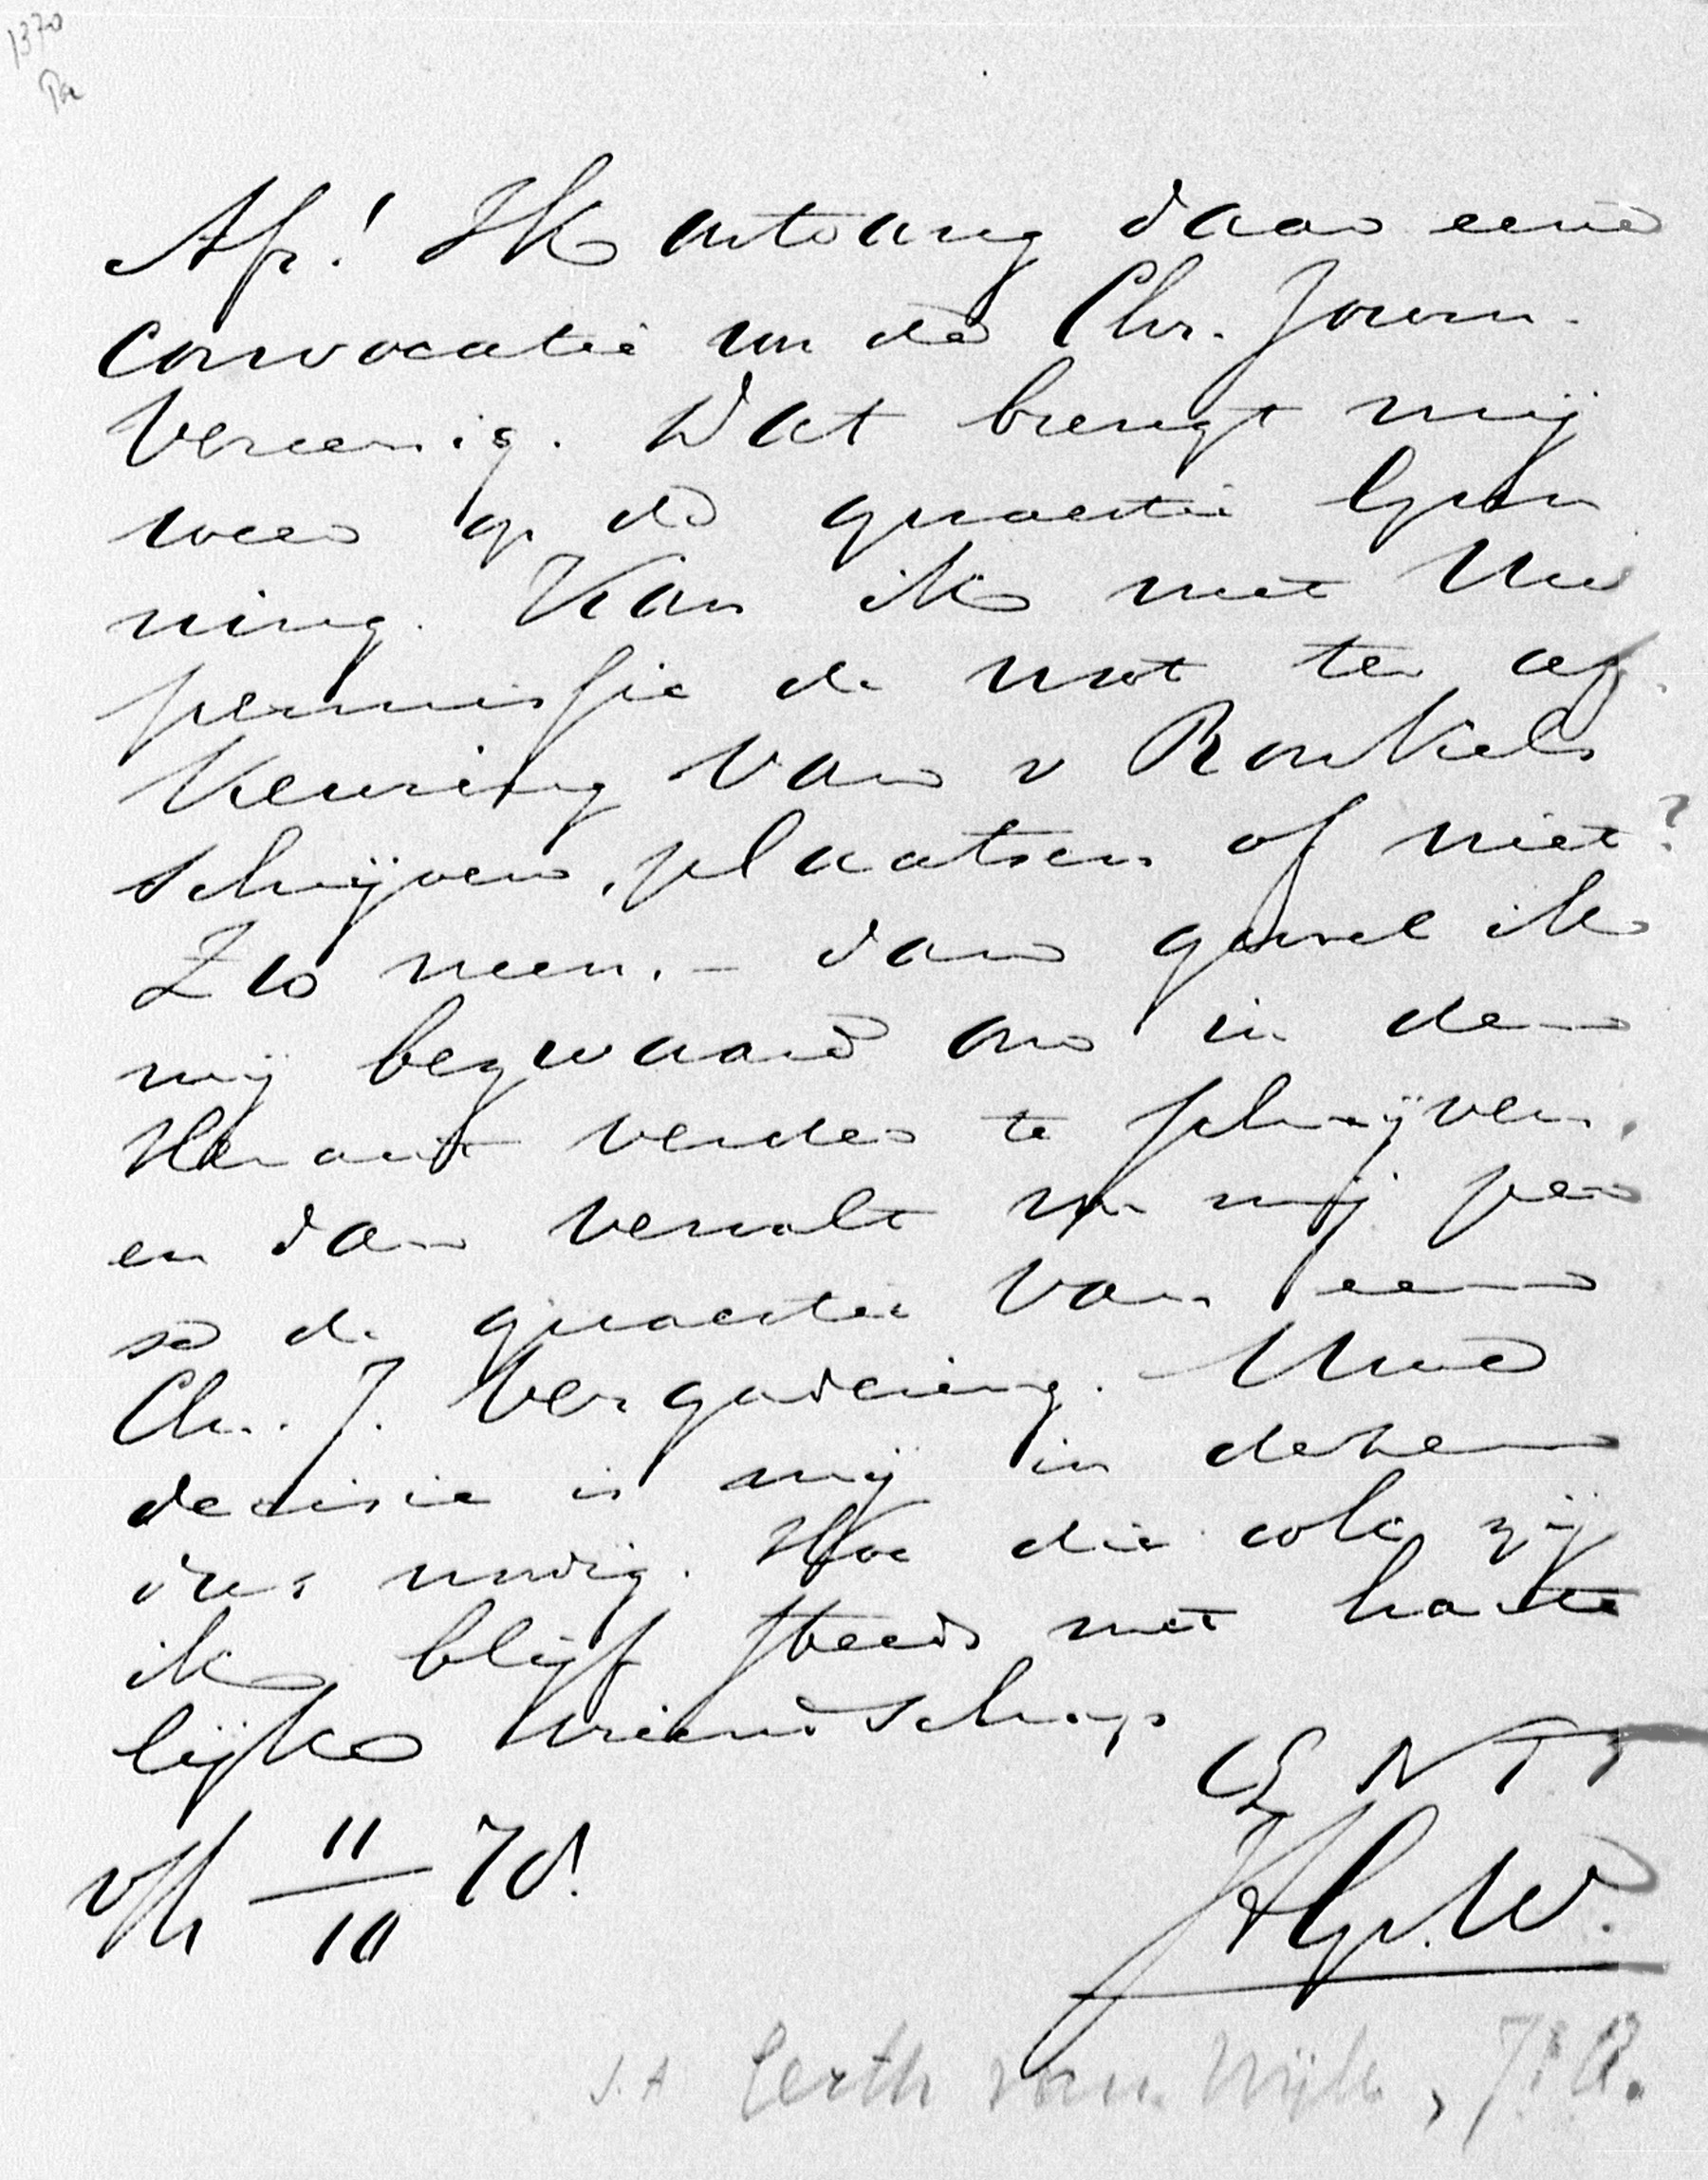 1370
Afr! Ik ontvang daar eene
convocatie van de Chr. Journ.
Vereenig. Dat brengt mij
weer op de quaestie Gun
ning. Kan ik met Uw
permissie de not ter af
keuring van v Ronkels
schrijven, plaatsen of niet?
Zoo neen. – dan gevoel ik
mij bezwaard om in den
Heraut verder te schrijven,
en dan vervalt vr mij per
se de quaestie van een
Chr. J. Vergadering. Uwe
decisie is mij in dezen
dus noodig. Hoe die ook zij
ik blijf steeds met harte
lijke vriendschap
TT
11/10 78.
JHGvW.
J.A. Gerth van Wijk, J.A.